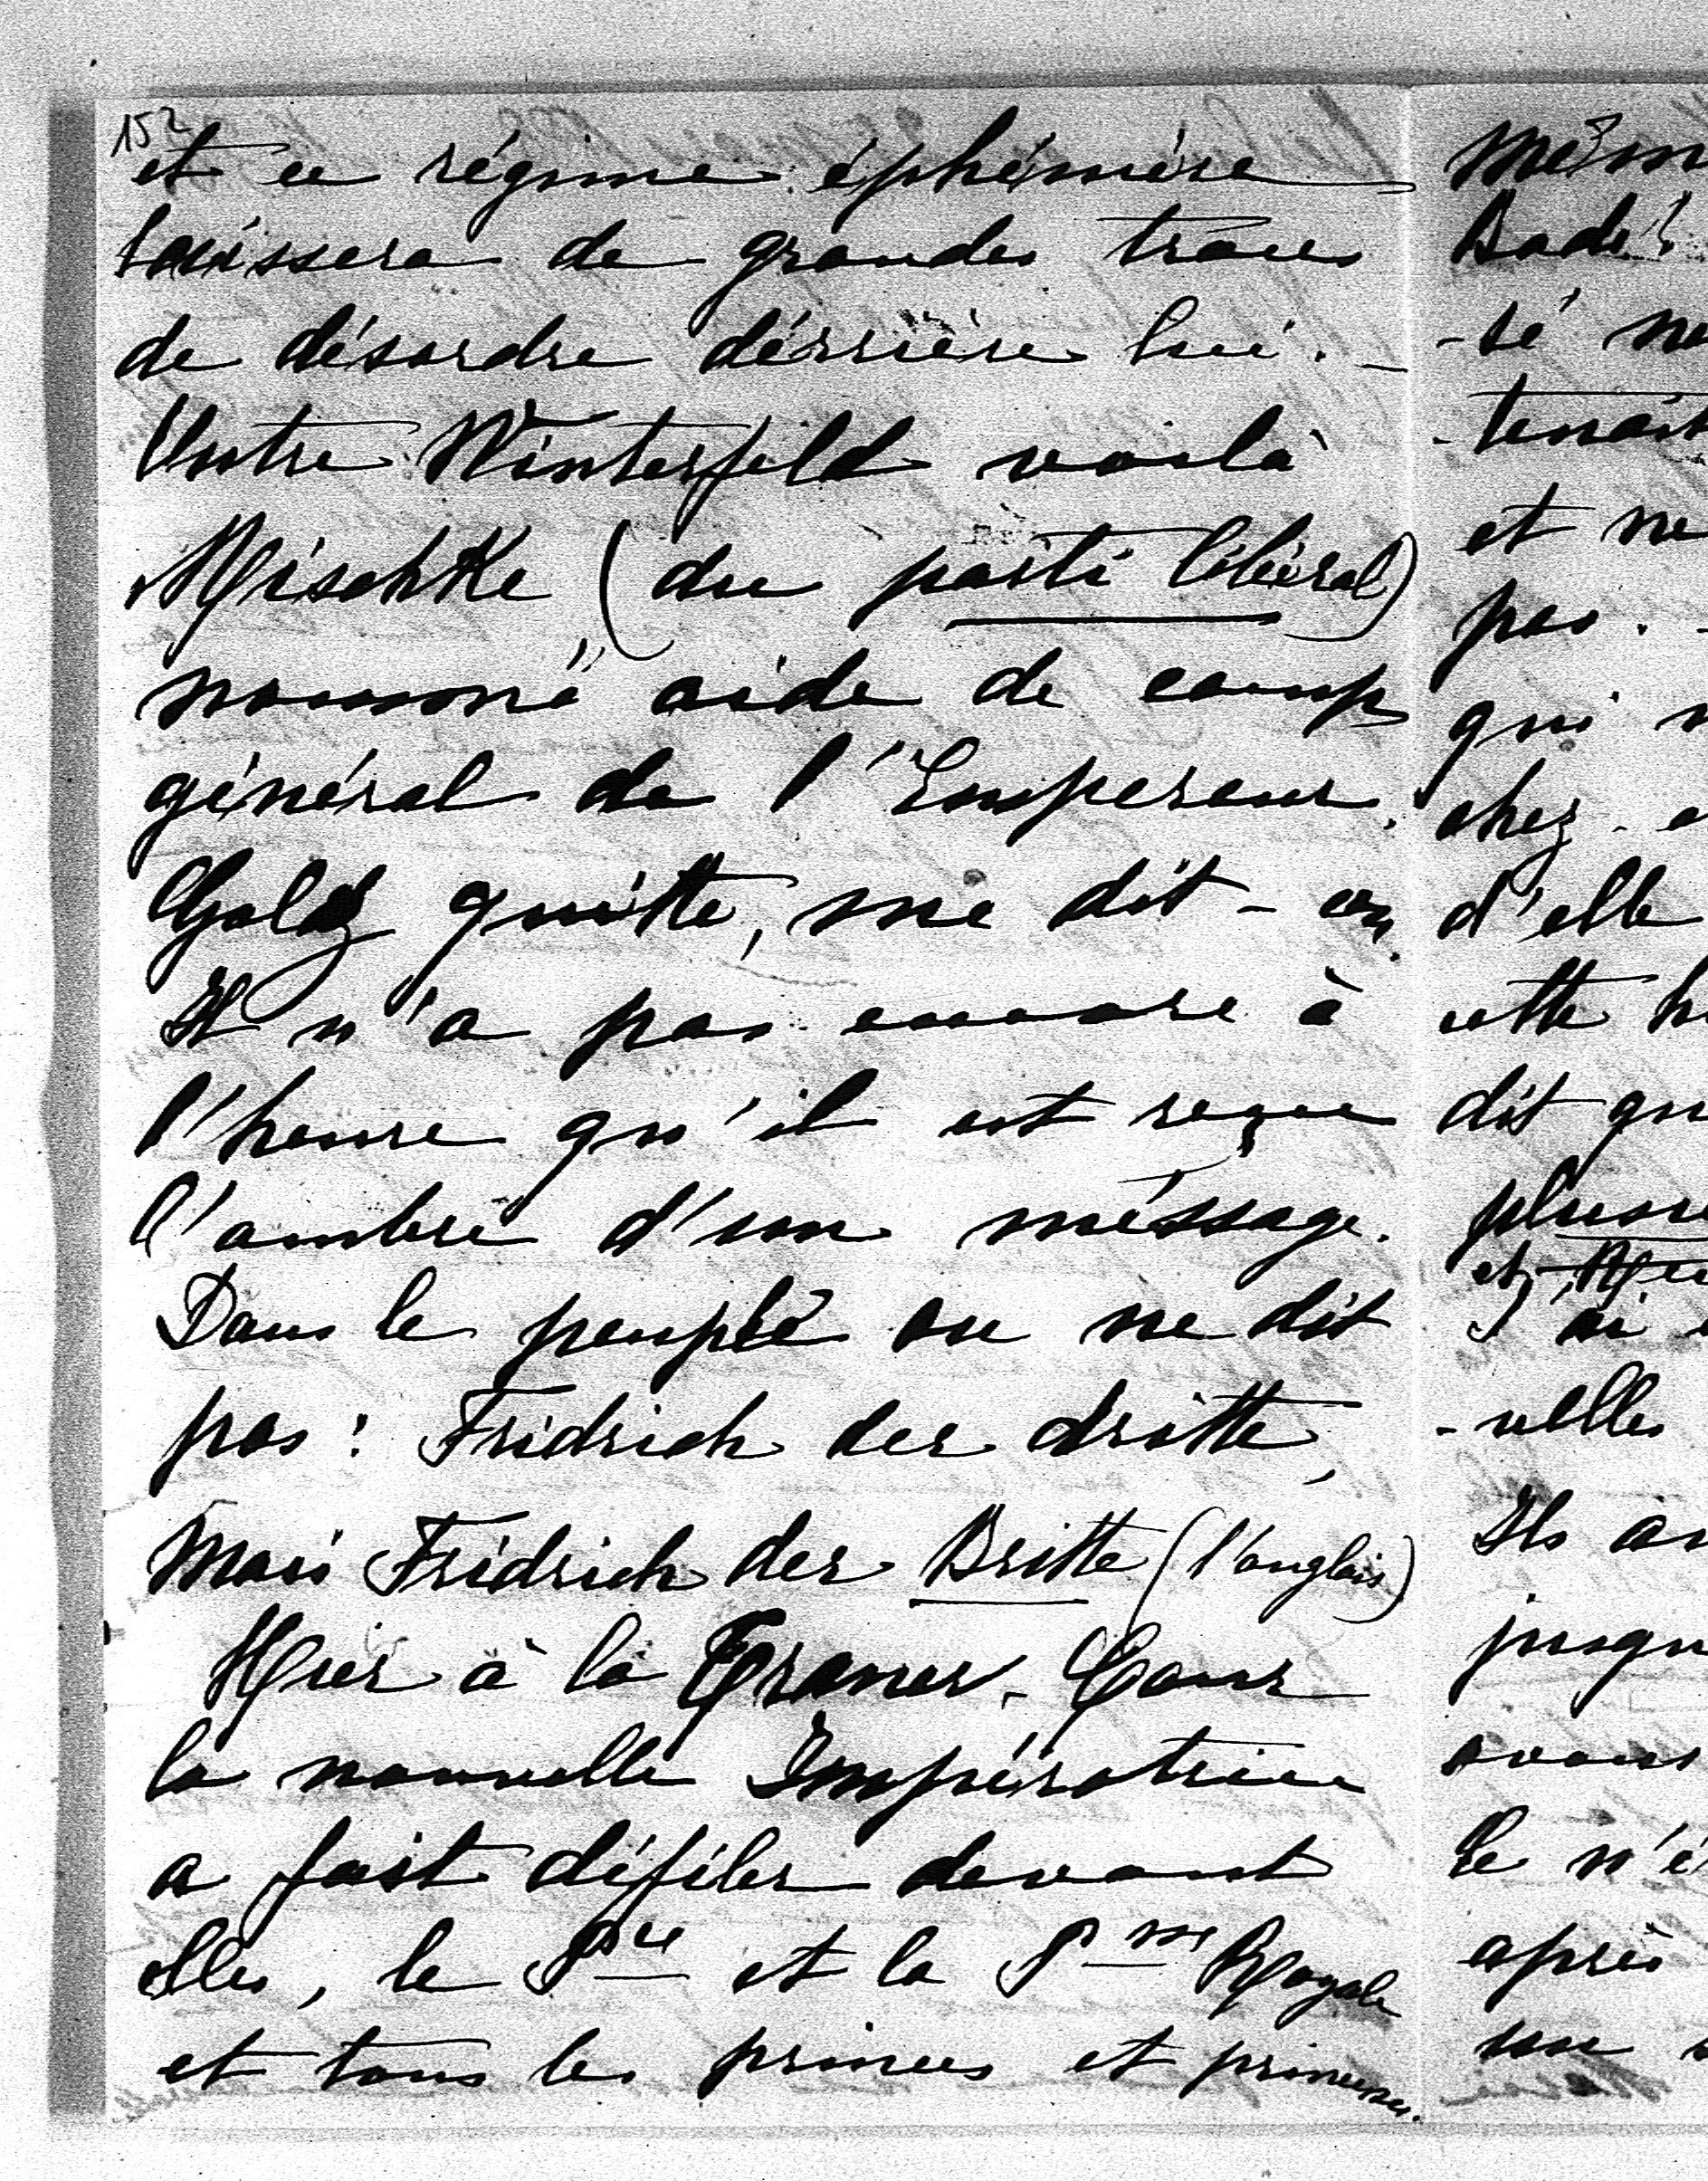 152
et ce régime éphémère
laissera de grandes traces
de désordre dérrière lui. -
Outre Winterfeld voilà
Mischke (du parti libéral)
nommé aide de camp
général de l'Empereur.
Goltz quitte, me dit-on.
Il n'a pas encore à
l'heure qu'il est reçue
l'ombre d'un méssage.
Dans le peuple on ne dit
pas: Fridrich der dritte,
mais Fridrich der Britte (l'anglais)
Hier à la Trauer-Cour
la nouvelle Impératrice
a fait défiler devant
elle, le Pce et la Psse Royale
et tous les princes et princesses.
même
Bade!
-té ne
-tenait
et ne
pas. -
qui
chez
d'elle
cette
dit qu

et
J'ai
-velles
Ils
jusqu
avons
Ce n'é
après
un